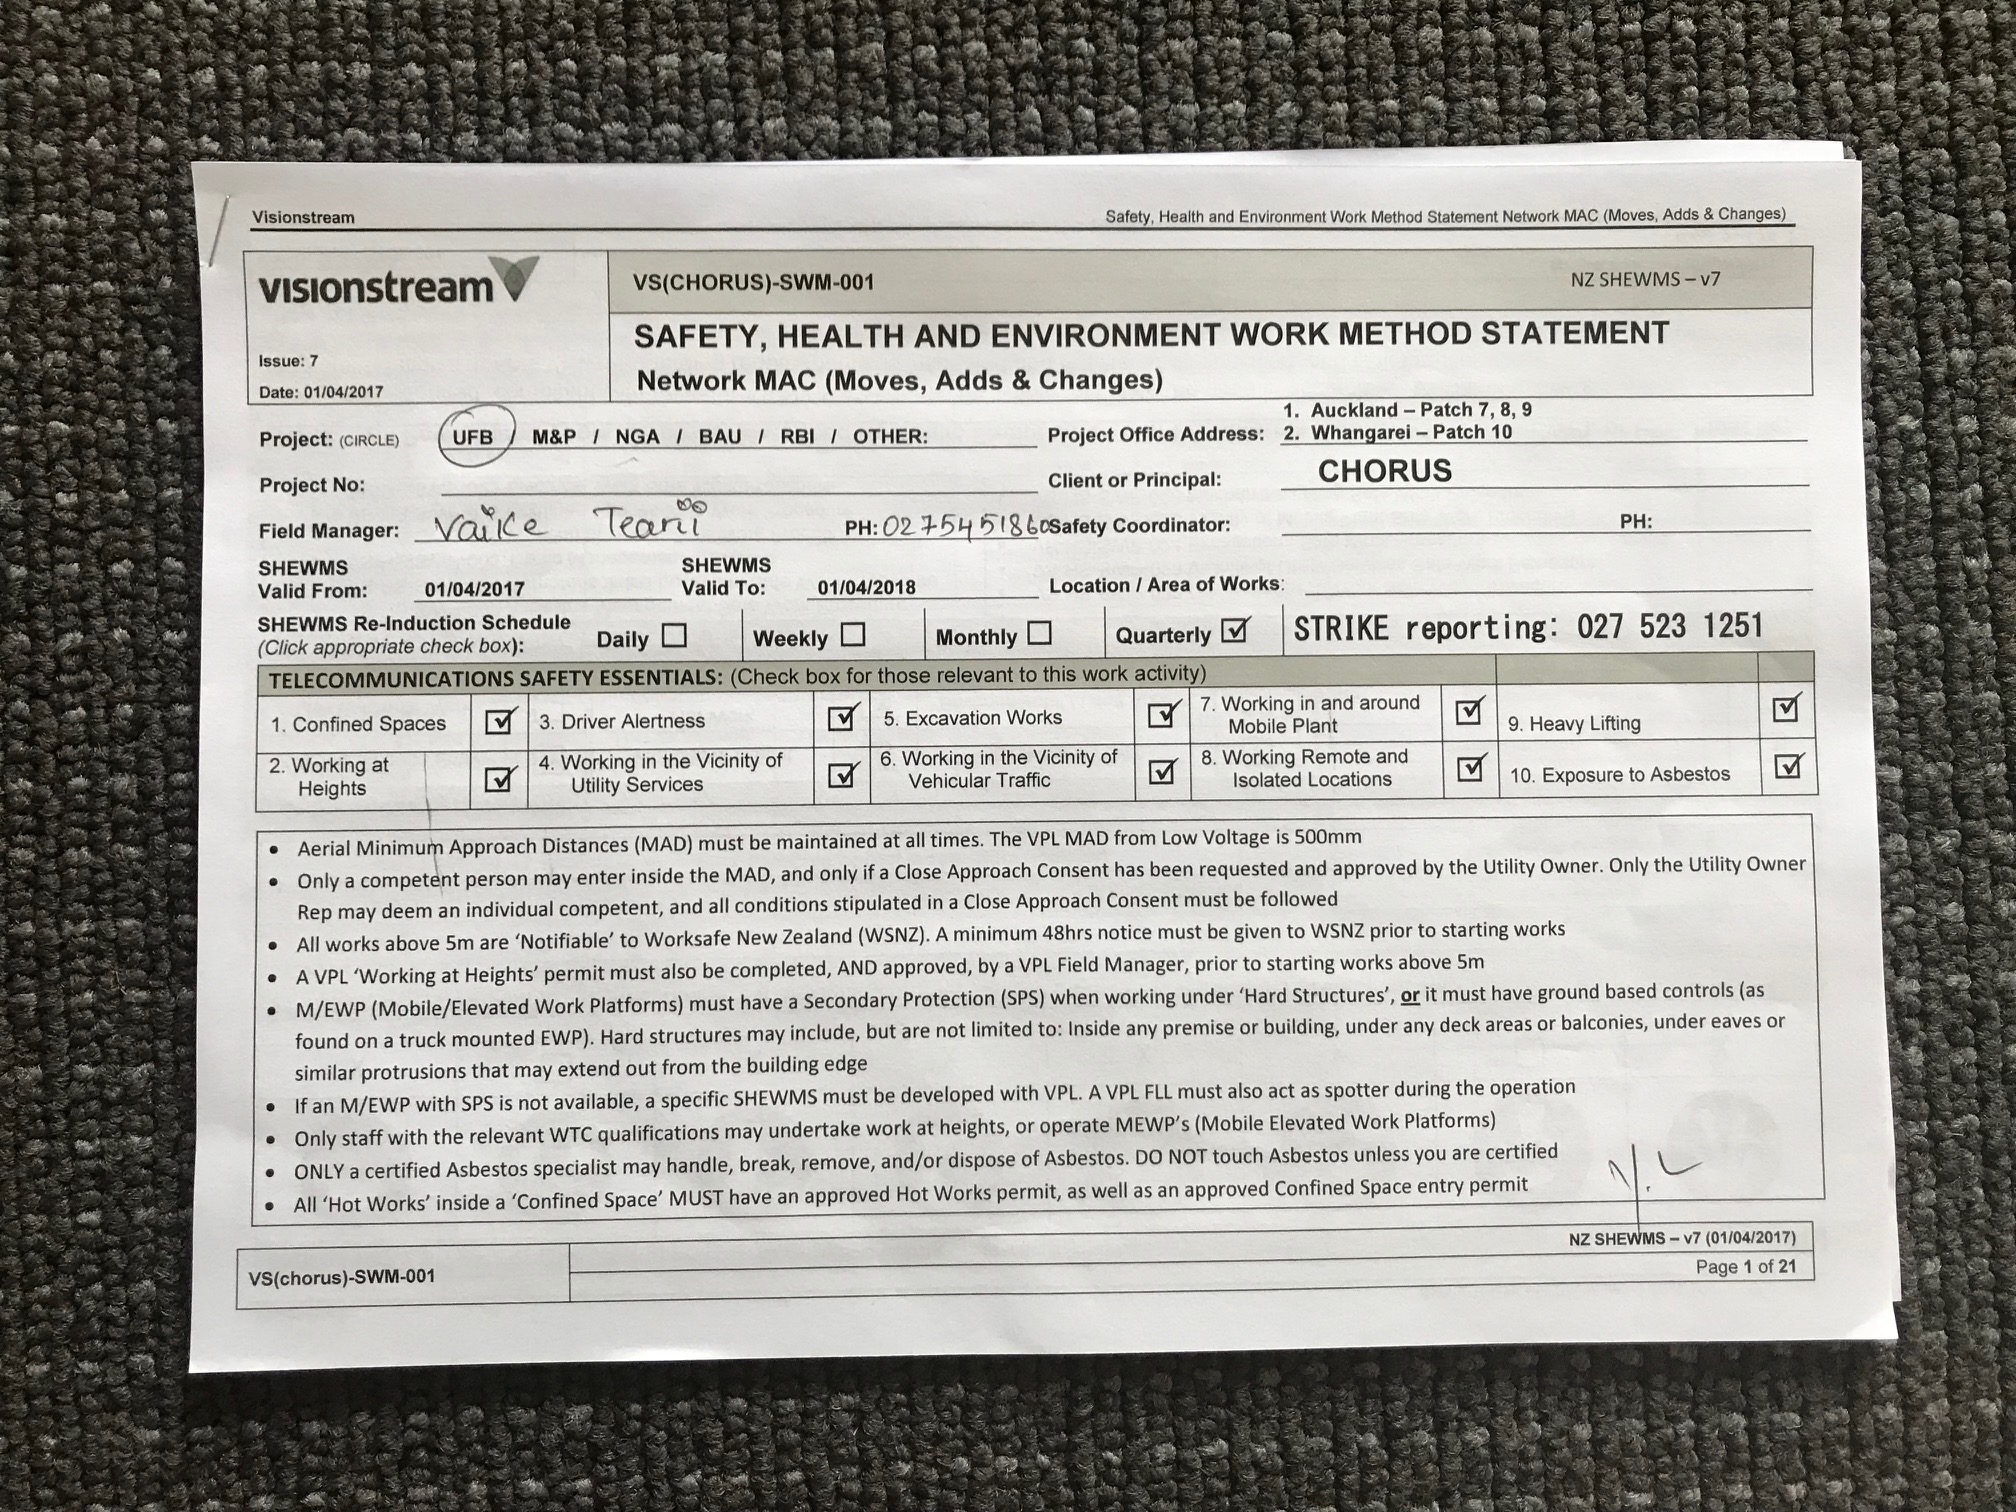 Visionstream Safety, Health and Environment Work Method Statement Network MAC (Moves, Adds & Changes)
VISIONstream
VS(CHORUS)-SWM-001 NZ SHEWMS – v7
SAFETY, HEALTH AND ENVIRONMENT WORK METHOD STATEMENT
Network MAC (Moves, Adds & Changes)
Issue: 7
Date: 01/04/2017
Project: (CIRCLE) UFB / M&P / NGA / BAU / RBI / OTHER: Project Office Address: 1. Auckland – Patch 7, 8, 9
2. Whangarei – Patch 10
Project No: Client or Principal: CHORUS
Field Manager: PH: Safety Coordinator: PH:
SHEWMS Valid From: 01/04/2017 SHEWMS Valid To: 01/04/2018 Location / Area of Works:
SHEWMS Re-Induction Schedule Daily ☐ Weekly ☐ Monthly ☐ Quarterly ☑ STRIKE reporting: 027 523 1251
(Click appropriate check box):
TELECOMMUNICATIONS SAFETY ESSENTIALS: (Check box for those relevant to this work activity)
1. Confined Spaces ☑ 3. Driver Alertness ☑ 5. Excavation Works ☑ 7. Working in and around Mobile Plant ☑ 9. Heavy Lifting ☑
2. Working at Heights ☑ 4. Working in the Vicinity of Utility Services ☑ 6. Working in the Vicinity of Vehicular Traffic ☑ 8. Working Remote and Isolated Locations ☑ 10. Exposure to Asbestos ☑
• Aerial Minimum Approach Distances (MAD) must be maintained at all times. The VPL MAD from Low Voltage is 500mm
• Only a competent person may enter inside the MAD, and only if a Close Approach Consent has been requested and approved by the Utility Owner. Only the Utility Owner
Rep may deem an individual competent, and all conditions stipulated in a Close Approach Consent must be followed
• All works above 5m are 'Notifiable' to Worksafe New Zealand (WSNZ). A minimum 48hrs notice must be given to WSNZ prior to starting works
• A VPL 'Working at Heights' permit must also be completed, AND approved, by a VPL Field Manager, prior to starting works above 5m
• M/EWP (Mobile/Elevated Work Platforms) must have a Secondary Protection (SPS) when working under 'Hard Structures', or it must have ground based controls (as
found on a truck mounted EWP). Hard structures may include, but are not limited to: Inside any premise or building, under any deck areas or balconies, under eaves or
similar protrusions that may extend out from the building edge
• If an M/EWP with SPS is not available, a specific SHEWMS must be developed with VPL. A VPL FLL must also act as spotter during the operation
• Only staff with the relevant WTC qualifications may undertake work at heights, or operate MEWP's (Mobile Elevated Work Platforms)
• ONLY a certified Asbestos specialist may handle, break, remove, and/or dispose of Asbestos. DO NOT touch Asbestos unless you are certified
• All 'Hot Works' inside a 'Confined Space' MUST have an approved Hot Works permit, as well as an approved Confined Space entry permit
NZ SHEWMS – v7 (01/04/2017)
VS(chorus)-SWM-001 Page 1 of 21